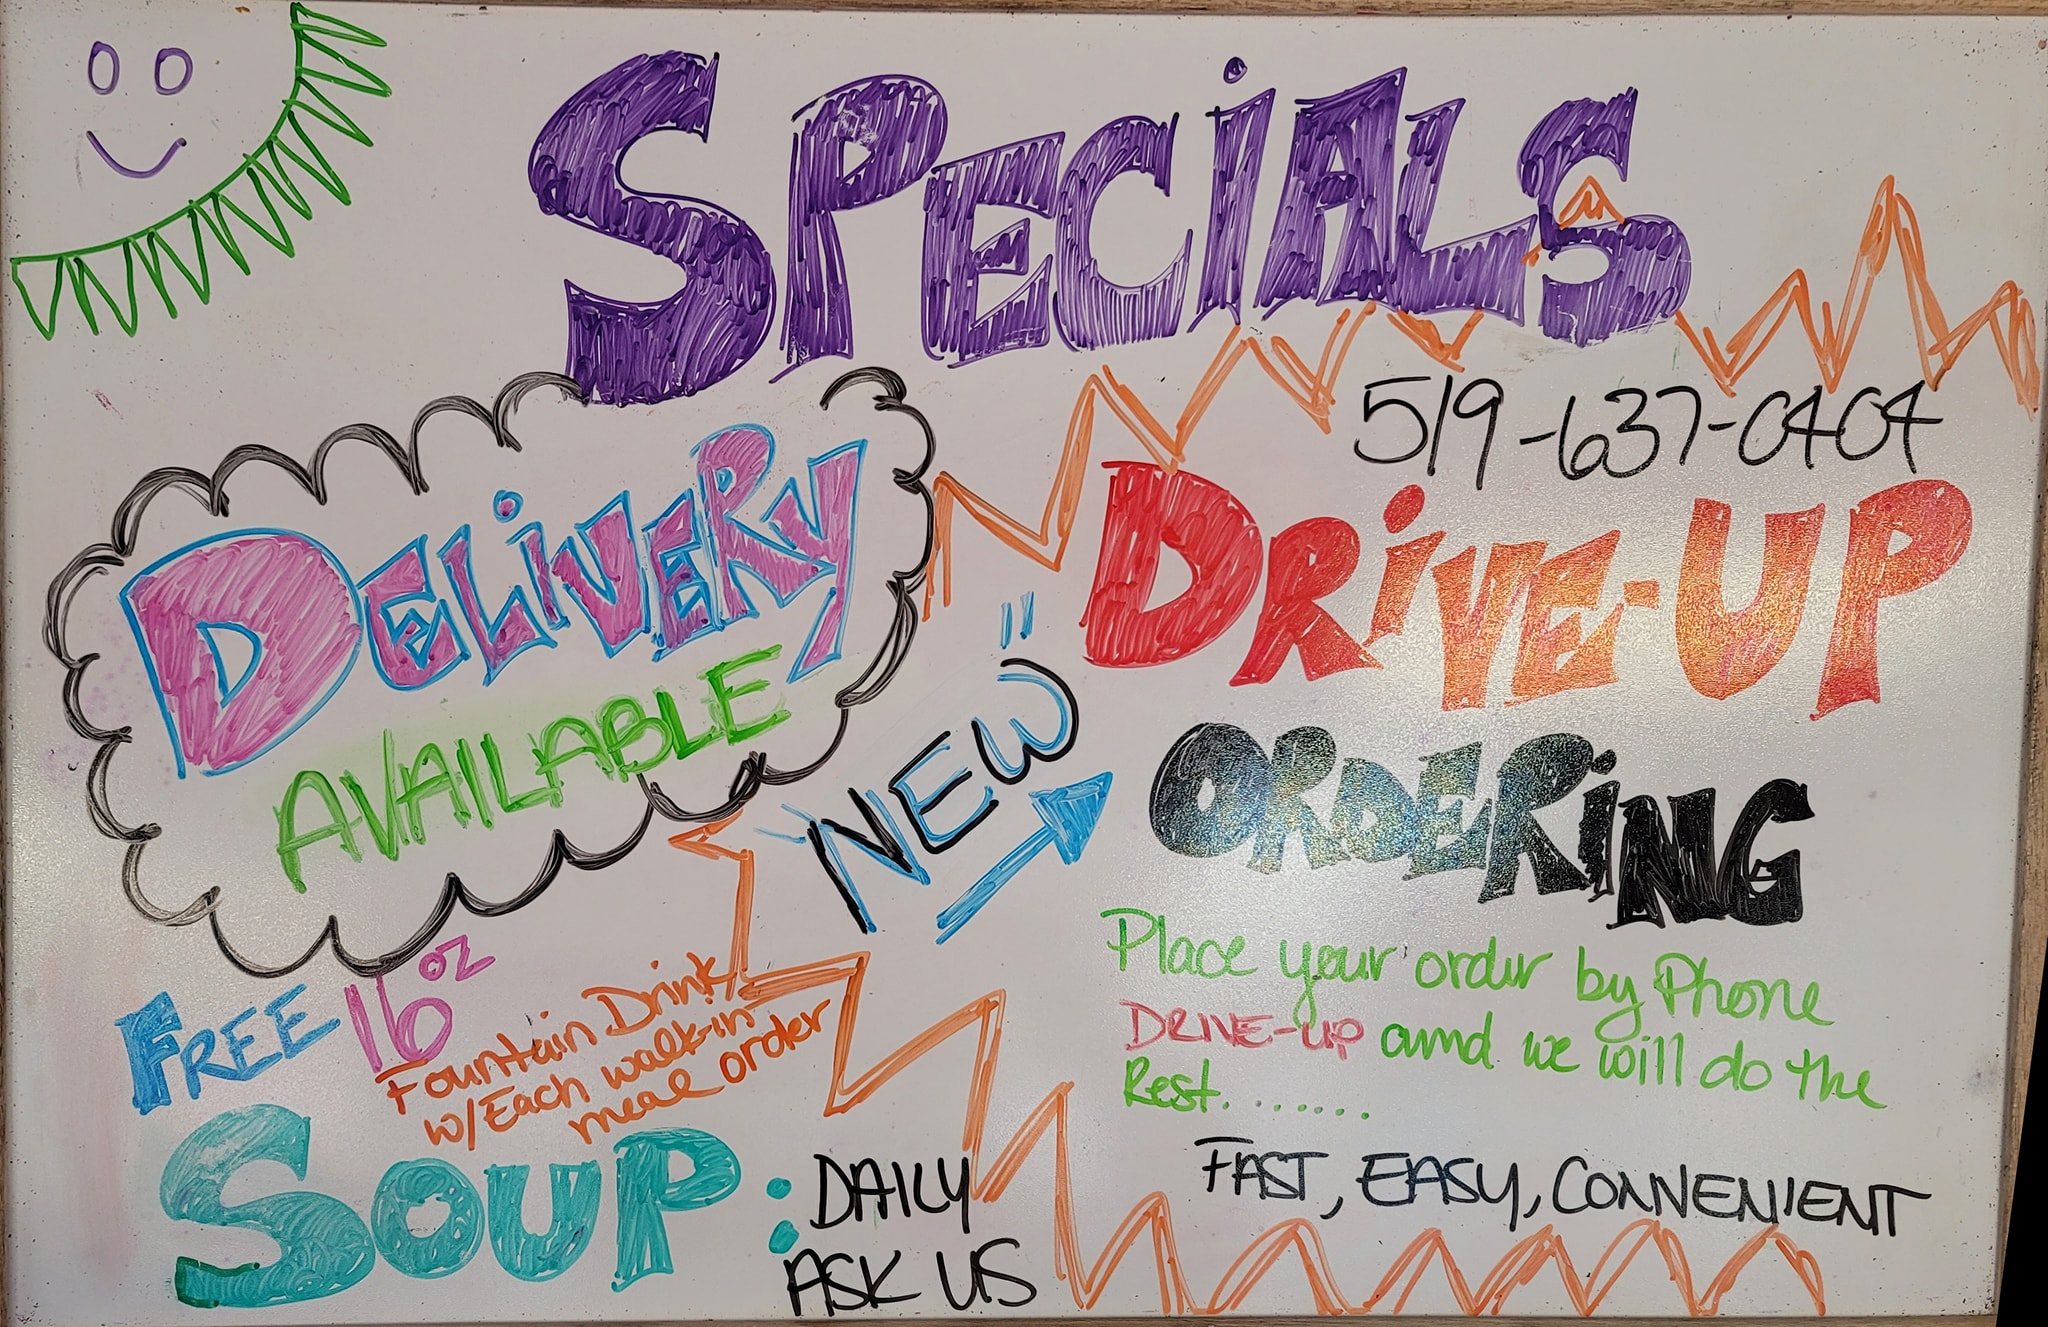 SPECiALS
DELiVERY
AVAILABLE
519-637-0404
DRiVE-UP
ORDERiNG
"NEW"
Place your order by Phone
DRIVE-UP and we will do the
Rest........
FAST, EASY, CONVENIENT
FREE 16 oz
Fountain Drink
w/Each walk-in
meal order
SOUP: DAILY
ASK US